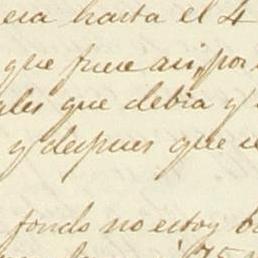 era hasta el 4
que fuese asi, por
ales que debia y
y despues que
fondo no estoy